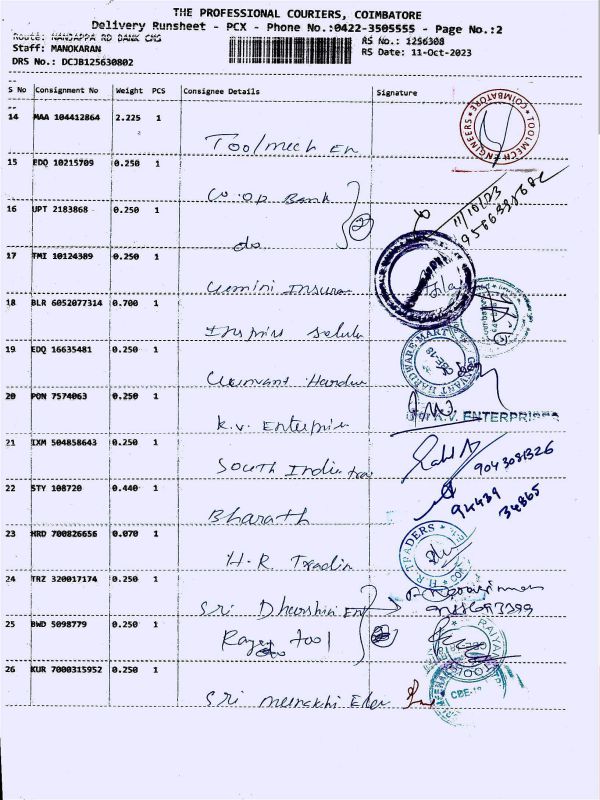 THE PROFESSIONAL COURIERS, COIMBATORE
Delivery Runsheet - PCX - Phone No.:0422-3505555 - Page No.:2
Route: NANJAPPA RD BANK CMS
RS No.: 1256308
Staff: MANOKARAN
RS Date: 11-Oct-2023
DRS No.: DCJB125630802
S No Consignment No Weight PCS Consignee Details Signature
14 MAA 104412864 2.225 1
Toolmech En
TOOLMECH ENGINEERS COIMBATORE
15 EDQ 10215709 0.250 1
Co-op Bank
11/10/23
16 UPT 2183868 0.250 1
do
17 TMI 10124389 0.250 1
18 BLR 6052077314 0.700 1
Inspire
19 EDQ 16635481 0.250 1
HARDWARE MART
20 PON 7574063 0.250 1
K.V. Enterprise
K.V. ENTERPRISES
21 IXM 504858643 0.250 1
South India
9043081326
22 STY 108720 0.440 1
Bharath
94439
34865
23 HRD 700826656 0.070 1
H.R. Tradin
H.R TRADERS
24 TRZ 320017174 0.250 1
Sri Dharshini En
25 BWD 5098779 0.250 1
tool
26 KUR 7000315952 0.250 1
Sri meenakhi
CBE-18